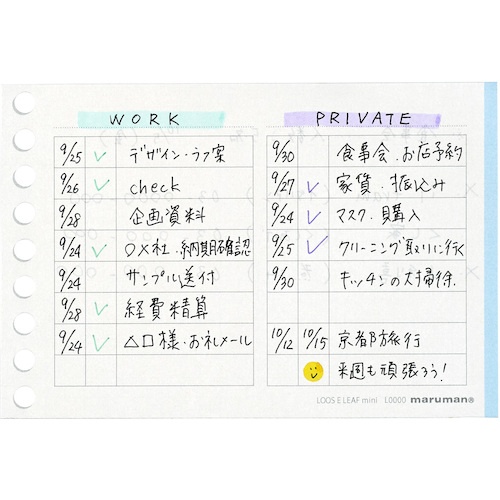 WORK
9/25 ✓ デザイン・ラフ案
9/26 ✓ check
9/28 企画資料
9/24 ✓ ○×社・納期確認
9/24 サンプル送付
9/28 ✓ 経費精算
9/24 ✓ △□様・お礼メール
PRIVATE
9/30 食事会・お店予約
9/27 ✓ 家賃・振込み
9/24 ✓ マスク・購入
9/25 ✓ クリーニング取りに行く
9/30 キッチンの大掃除
10/12 10/15 京都旅行
来週も頑張ろう!
LOOSE LEAF mini L0000 maruman®